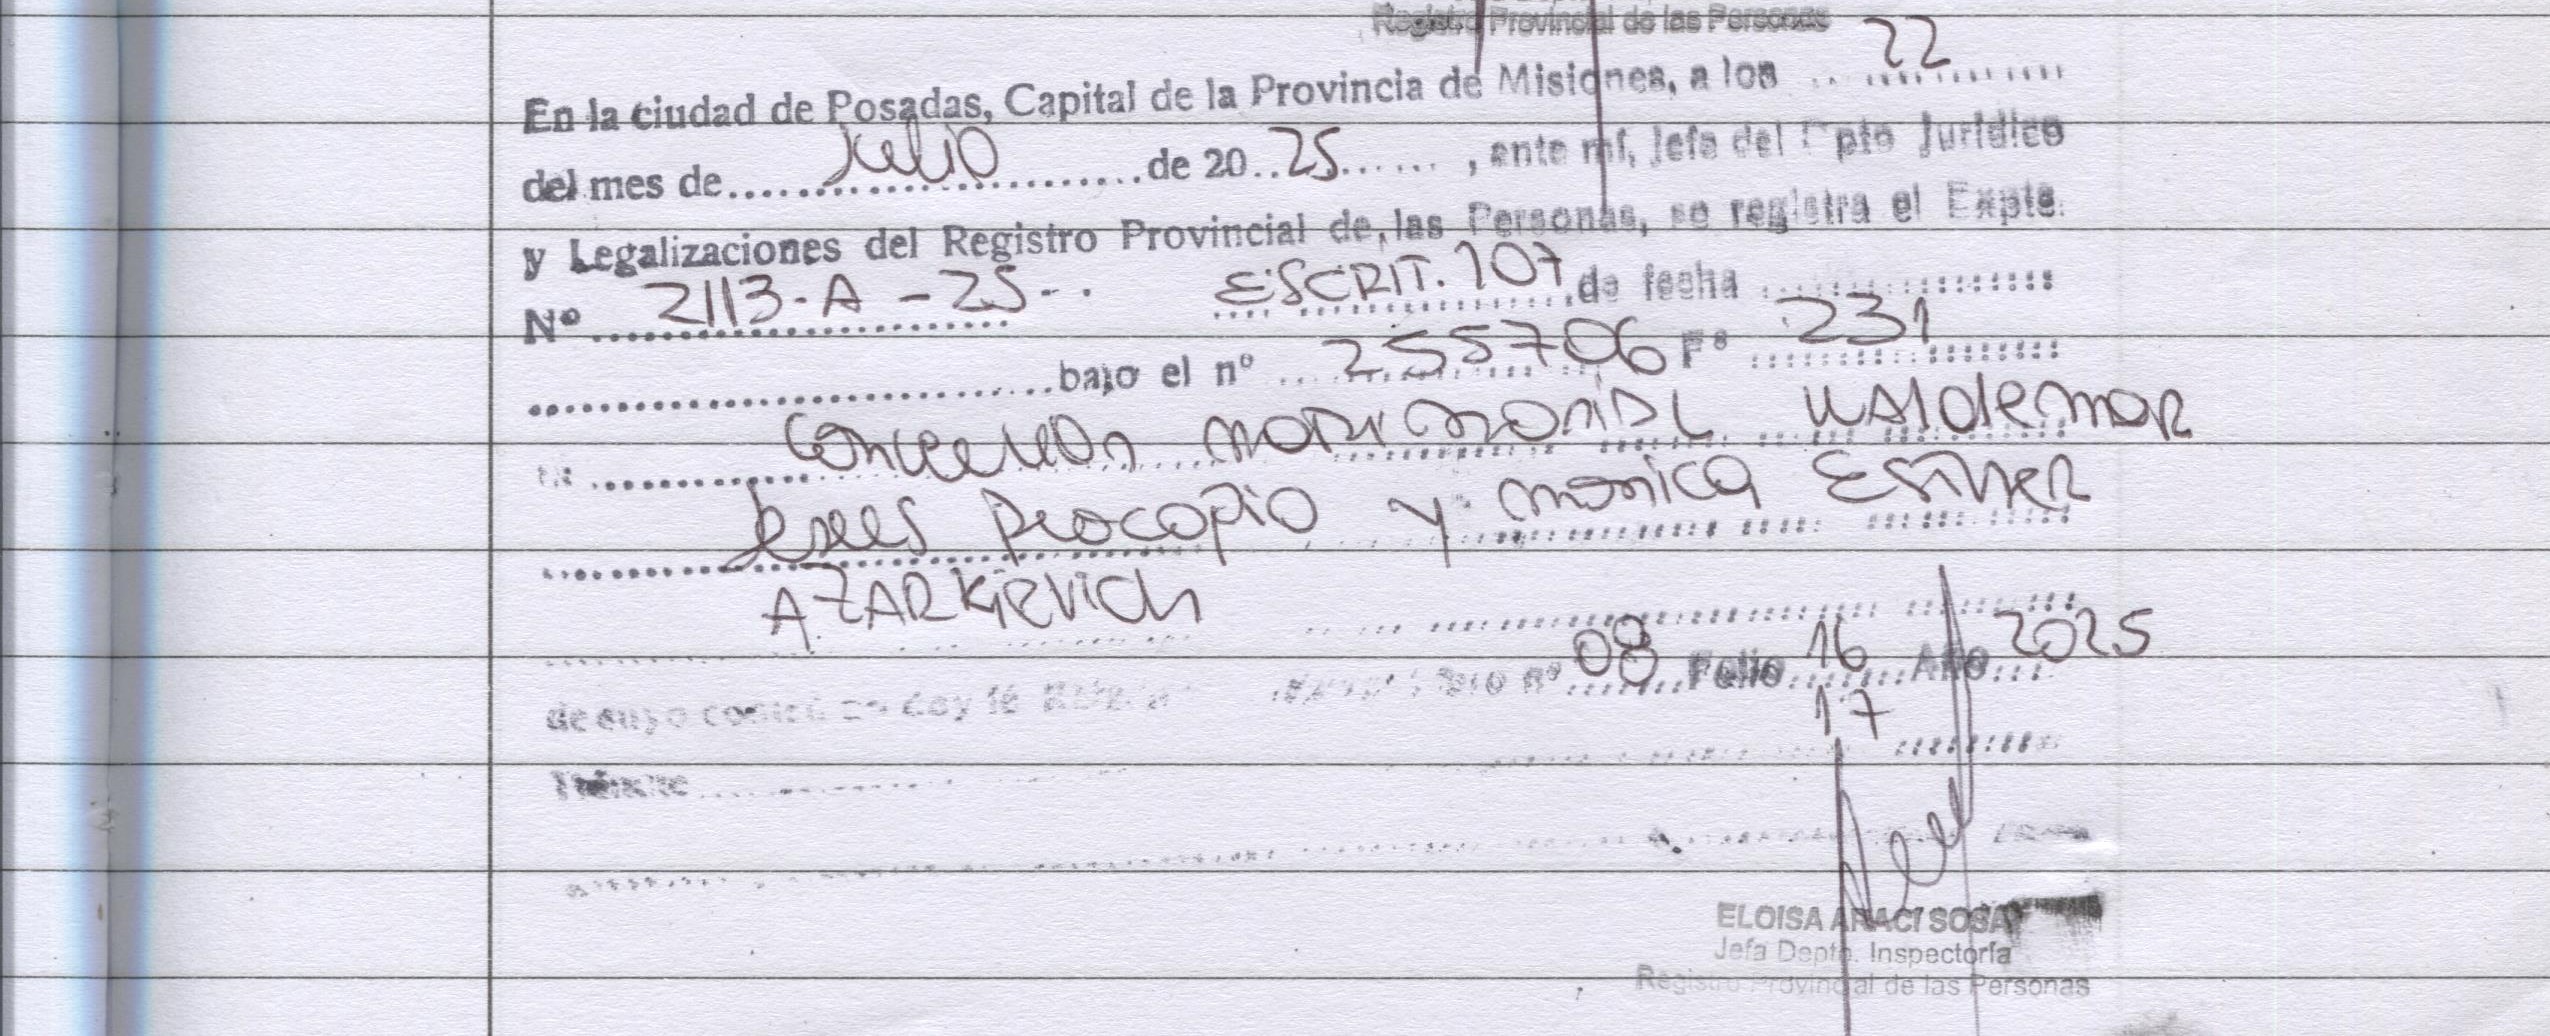 Registro Provincial de las Personas
En la ciudad de Posadas, Capital de la Provincia de Misiones, a los 22
del mes de Julio de 20 25, ante mí, Jefa del Dpto Jurídico
y Legalizaciones del Registro Provincial de las Personas, se registra el Expte.
Nº 2113-A-25. ESCRIT. 107 de fecha
bajo el nº 255706 Fº 231
matrimonial Waldemar
Procopio y Monica Esther
AZARKIEVICH
de cuyo doy fé nº 08 Folio 16 Año 2025
17
Trámite
ELOISA ARACI SOSA
Jefa Depto. Inspectoría
Registro Provincial de las Personas